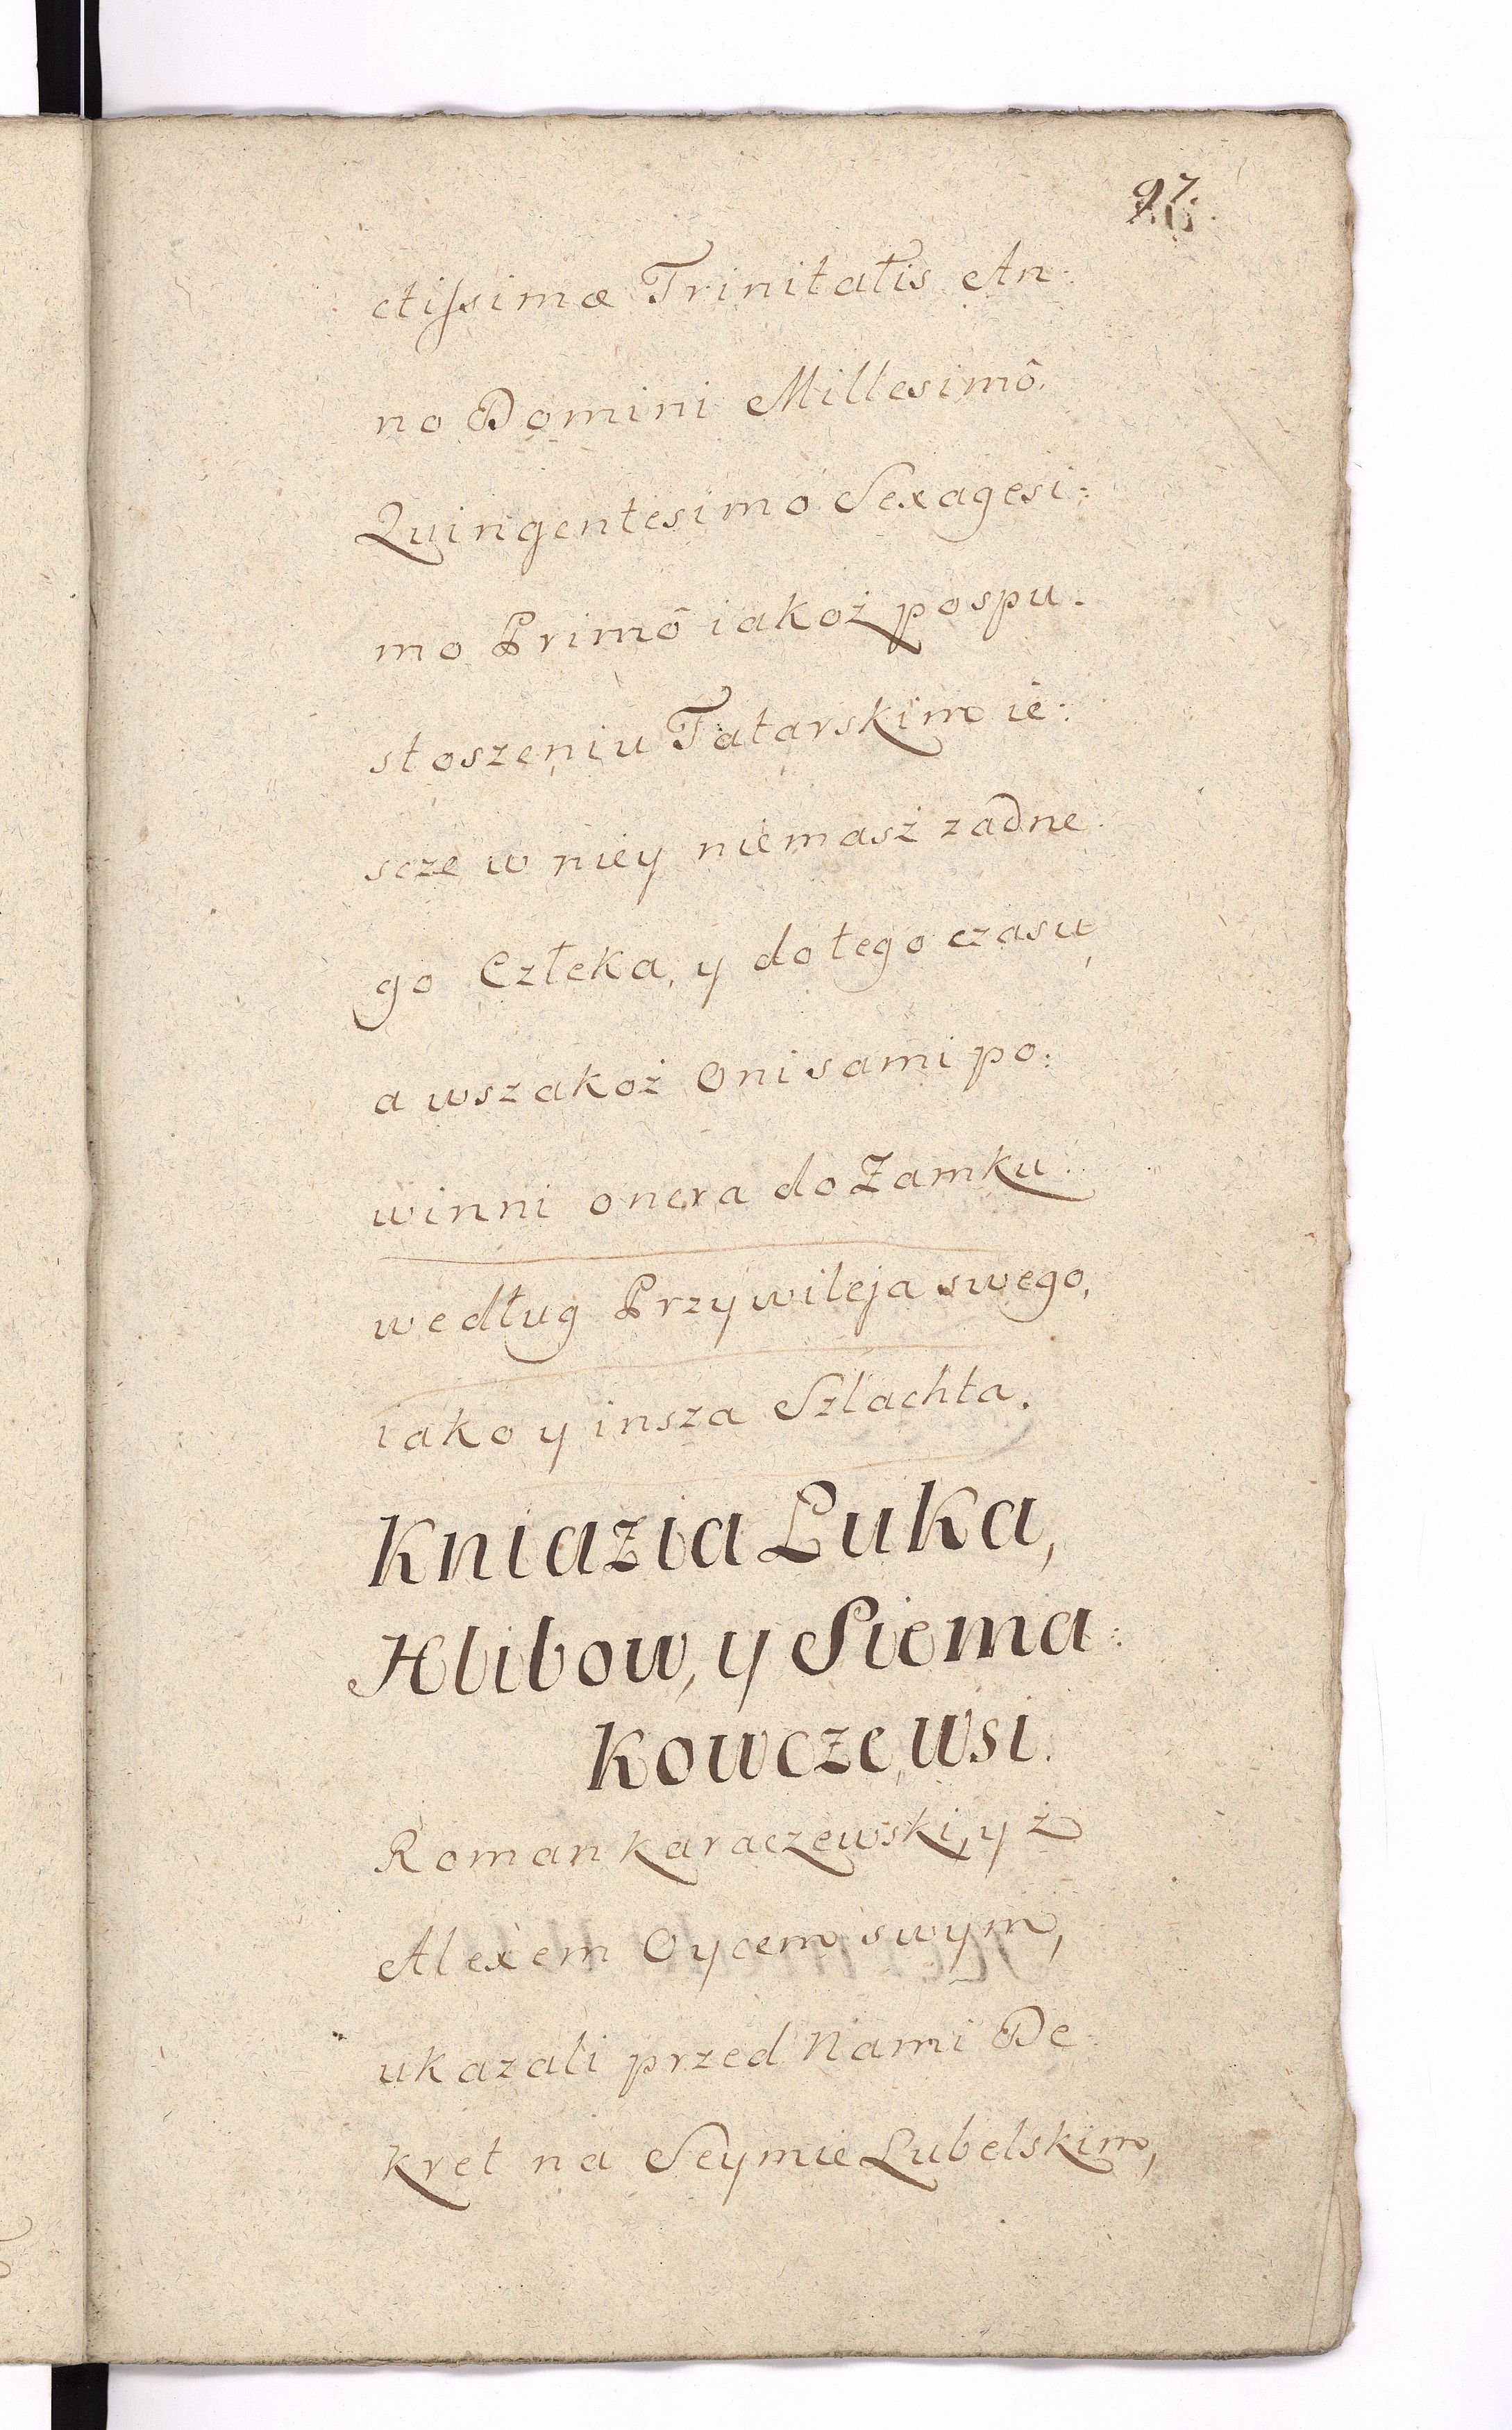 97.
ctiſsimæ Trinitatis An:
no Domini Millesimô.
Quingentesimo Sexagesi:
mo Primô iakoż pospu.
stoszeniu Tatarskim ie:
scze w niey niemasż zadne
go Człeka, y do tego czasu,
a wszakoż Oni sami po:
winni onera do Zamku
według Przywileja swego,
iako y insza Szlachta.
Kniazia Luka,
Hlibow, y Siema:
kowcze, wsi.
Roman Karaczewski, y ż
Alexem Oycem swym,
ukazali przed Nami De
kret na Seymie Lubelskim,